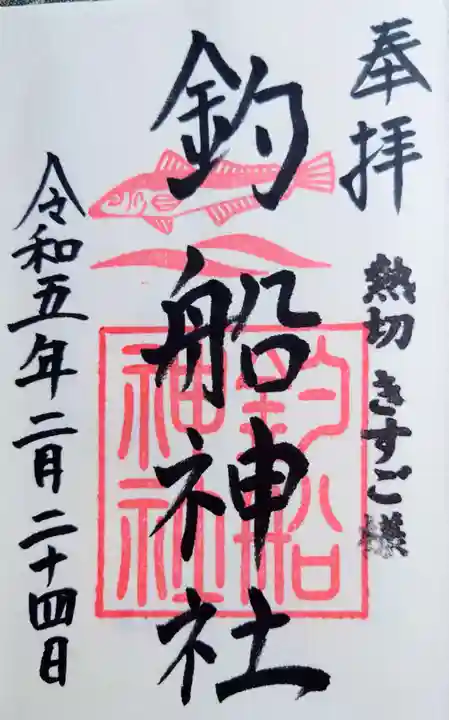 奉拝
熱切 きすご様
釣船神社
釣船
神社
令和五年二月二十四日